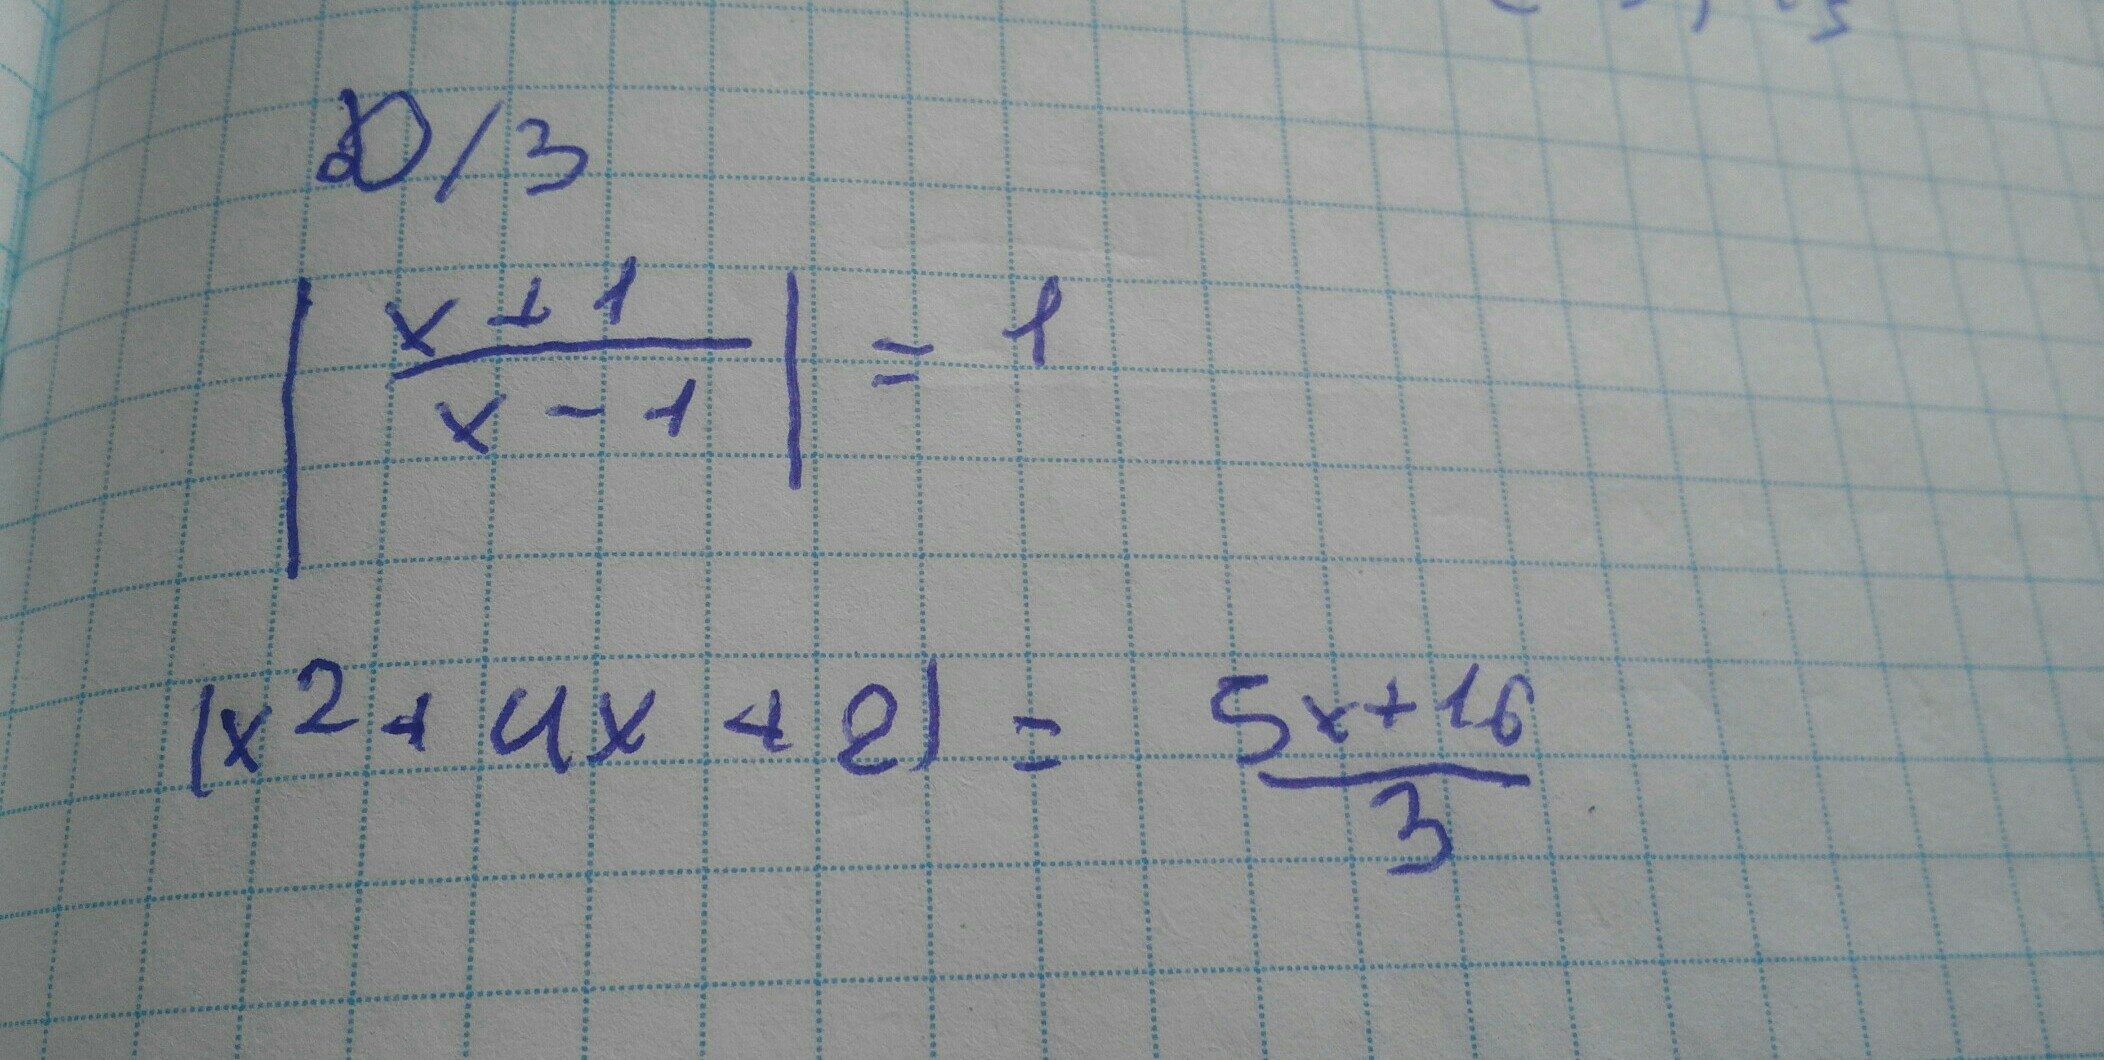 Д/З
| x+1 / x-1 | = 1
|x²+4x+2| = 5x+16 / 3